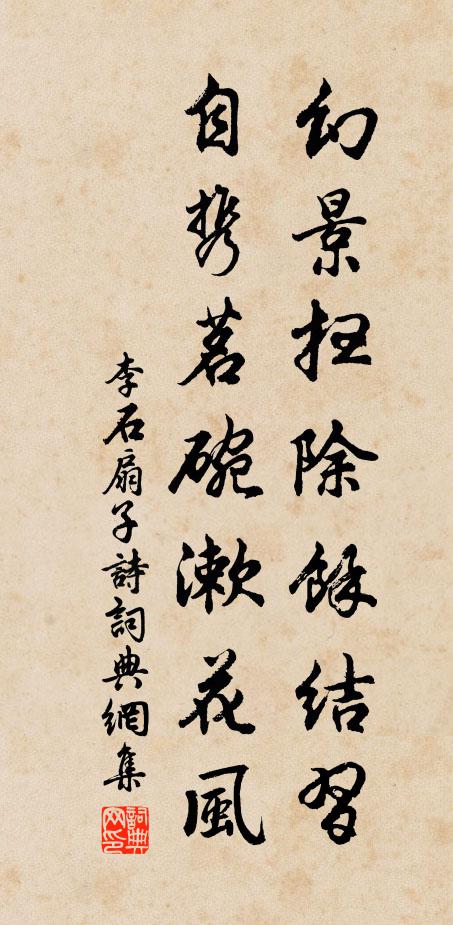 幻景扫除餘结習
自携茗碗漱花風
李石扇子詩詞典網集
詞典網印